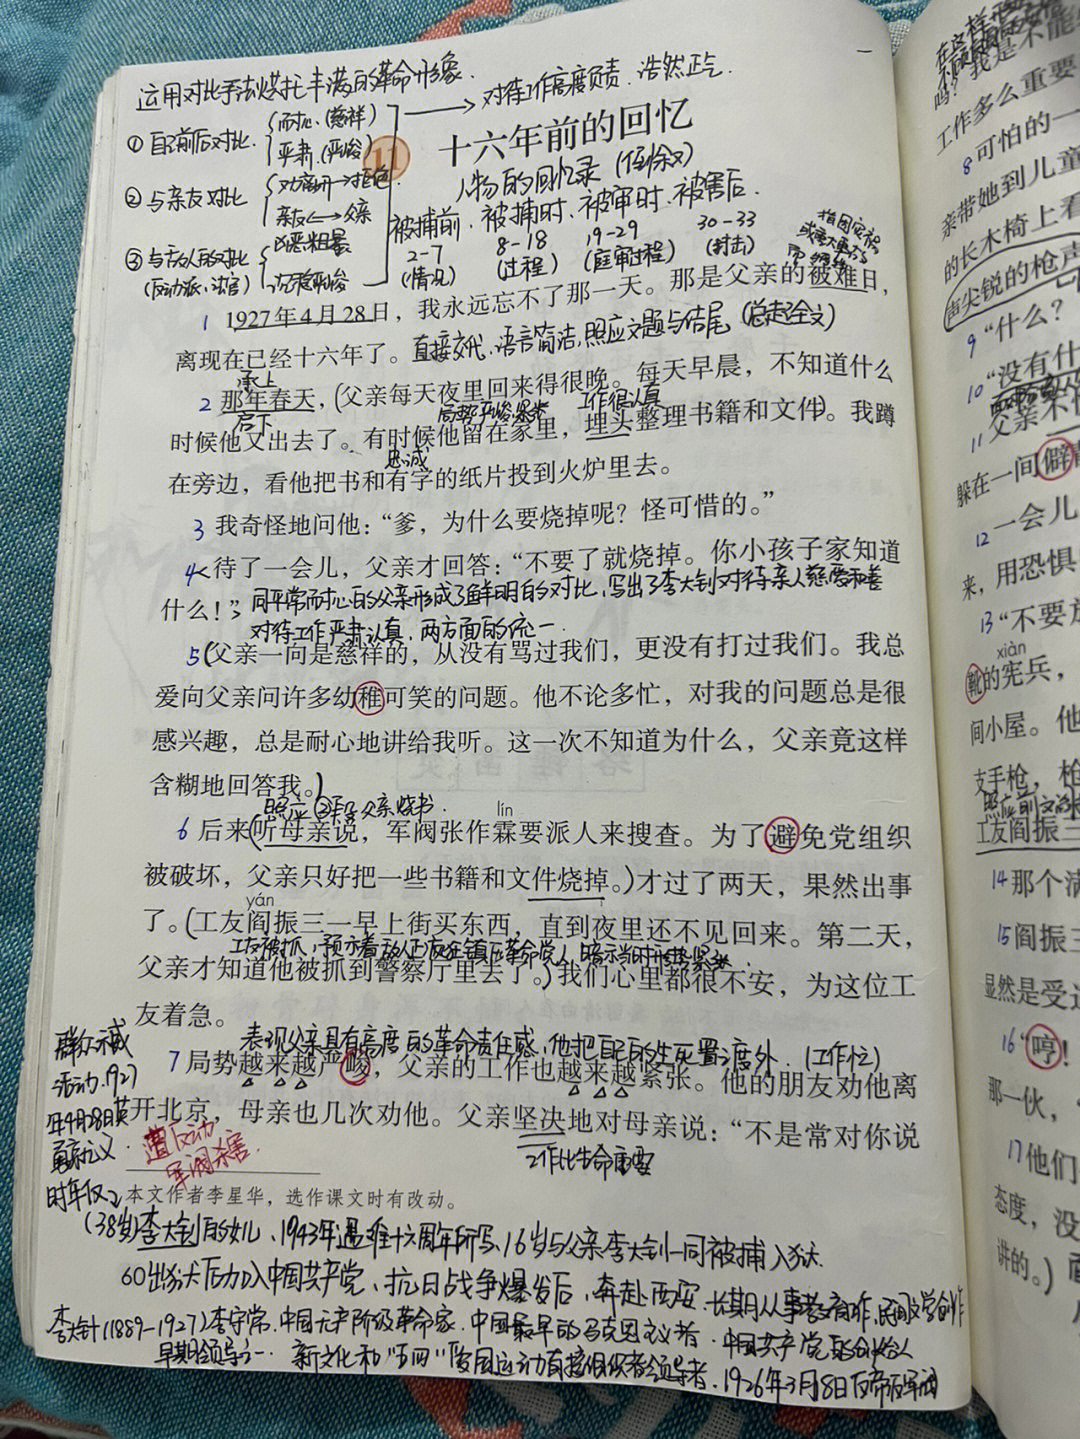 运用对比手法烘托丰满的革命形象.
对待工作高度负责. 浩然正气.
①自己前后对比.
耐心.(慈祥)
严肃.(严峻)
11 十六年前的回忆
人物的回忆录 (倒叙)
②与亲友对比
亲友 父亲
被捕前、被捕时、被审时、被害后.
2-7 8-18 19-29 30-33
(情况) (过程) (庭审过程)
③与敌人的对比
(反动派、法官)
沉稳严峻
1 1927年4月28日，我永远忘不了那一天。那是父亲的被难日，
离现在已经十六年了。直接交代、语言简洁,照应文题与结尾,(总起全文)
承上
2 那年春天，(父亲每天夜里回来得很晚。每天早晨，不知道什么
启下
工作很认真
时候他又出去了。有时候他留在家里，埋头整理书籍和文件)。我蹲
忠诚
在旁边，看他把书和有字的纸片投到火炉里去。
3 我奇怪地问他：“爹，为什么要烧掉呢？怪可惜的。”
4 待了一会儿，父亲才回答：“不要了就烧掉。你小孩子家知道
什么！” 同平常耐心的父亲形成了鲜明的对比,写出了李大钊对待亲人慈爱和善
对待工作严肃认真,两方面的统一.
5 (父亲一向是慈祥的，从没有骂过我们，更没有打过我们。我总
爱向父亲问许多幼稚可笑的问题。他不论多忙，对我的问题总是很
感兴趣，总是耐心地讲给我听。这一次不知道为什么，父亲竟这样
含糊地回答我。)
照应②段父亲烧书. lín
6 后来(听母亲说，军阀张作霖要派人来搜查。为了避免党组织
被破坏，父亲只好把一些书籍和文件烧掉。)才过了两天，果然出事
yán
了。(工友阎振三一早上街买东西，直到夜里还不见回来。第二天，
工友被抓,预示着敌人正疯狂镇压革命党人,暗示当时形势紧张.
父亲才知道他被抓到警察厅里去了。)我们心里都很不安，为这位工
友着急。
表现父亲具有高度的革命责任感,他把自己的生死置之度外.(工作忙)
7 局势越来越严峻，父亲的工作也越来越紧张。他的朋友劝他离
开北京，母亲也几次劝他。父亲坚决地对母亲说：“不是常对你说
工作比生命重要
群众示威
活动.1927
年4月28日英
勇就义.
遭反动
军阀杀害.
时年仅
本文作者李星华，选作课文时有改动。
(38岁)李大钊的女儿、1943年遇难十六周年所写、16岁与父亲李大钊一同被捕入狱
出狱后加入中国共产党、抗日战争爆发后,奔赴西安.长期从事教育工作,民间文学创作
李大钊(1889-1927)李守常.中国无产阶级革命家.中国最早的马克思主义者.中国共产党的创始人
早期领导之一.新文化和“五四”爱国运动直接组织者领导者.1926年3月18日反帝反军阀
我是不能
吗？
工作多么重要
8 可怕的一
亲带她到儿童
的长木椅上看
声尖锐的枪声
9 “什么？
10 “没有什
11 父亲不
躲在一间僻
12 一会儿
来，用恐惧
13 “不要放
xiàn
靴的宪兵，
间小屋。他
支手枪，枪
照应前文
工友阎振三
14 那个满
15 阎振三
显然是受过
16 “哼！
那一伙，
17 他们
态度，没
讲的。)